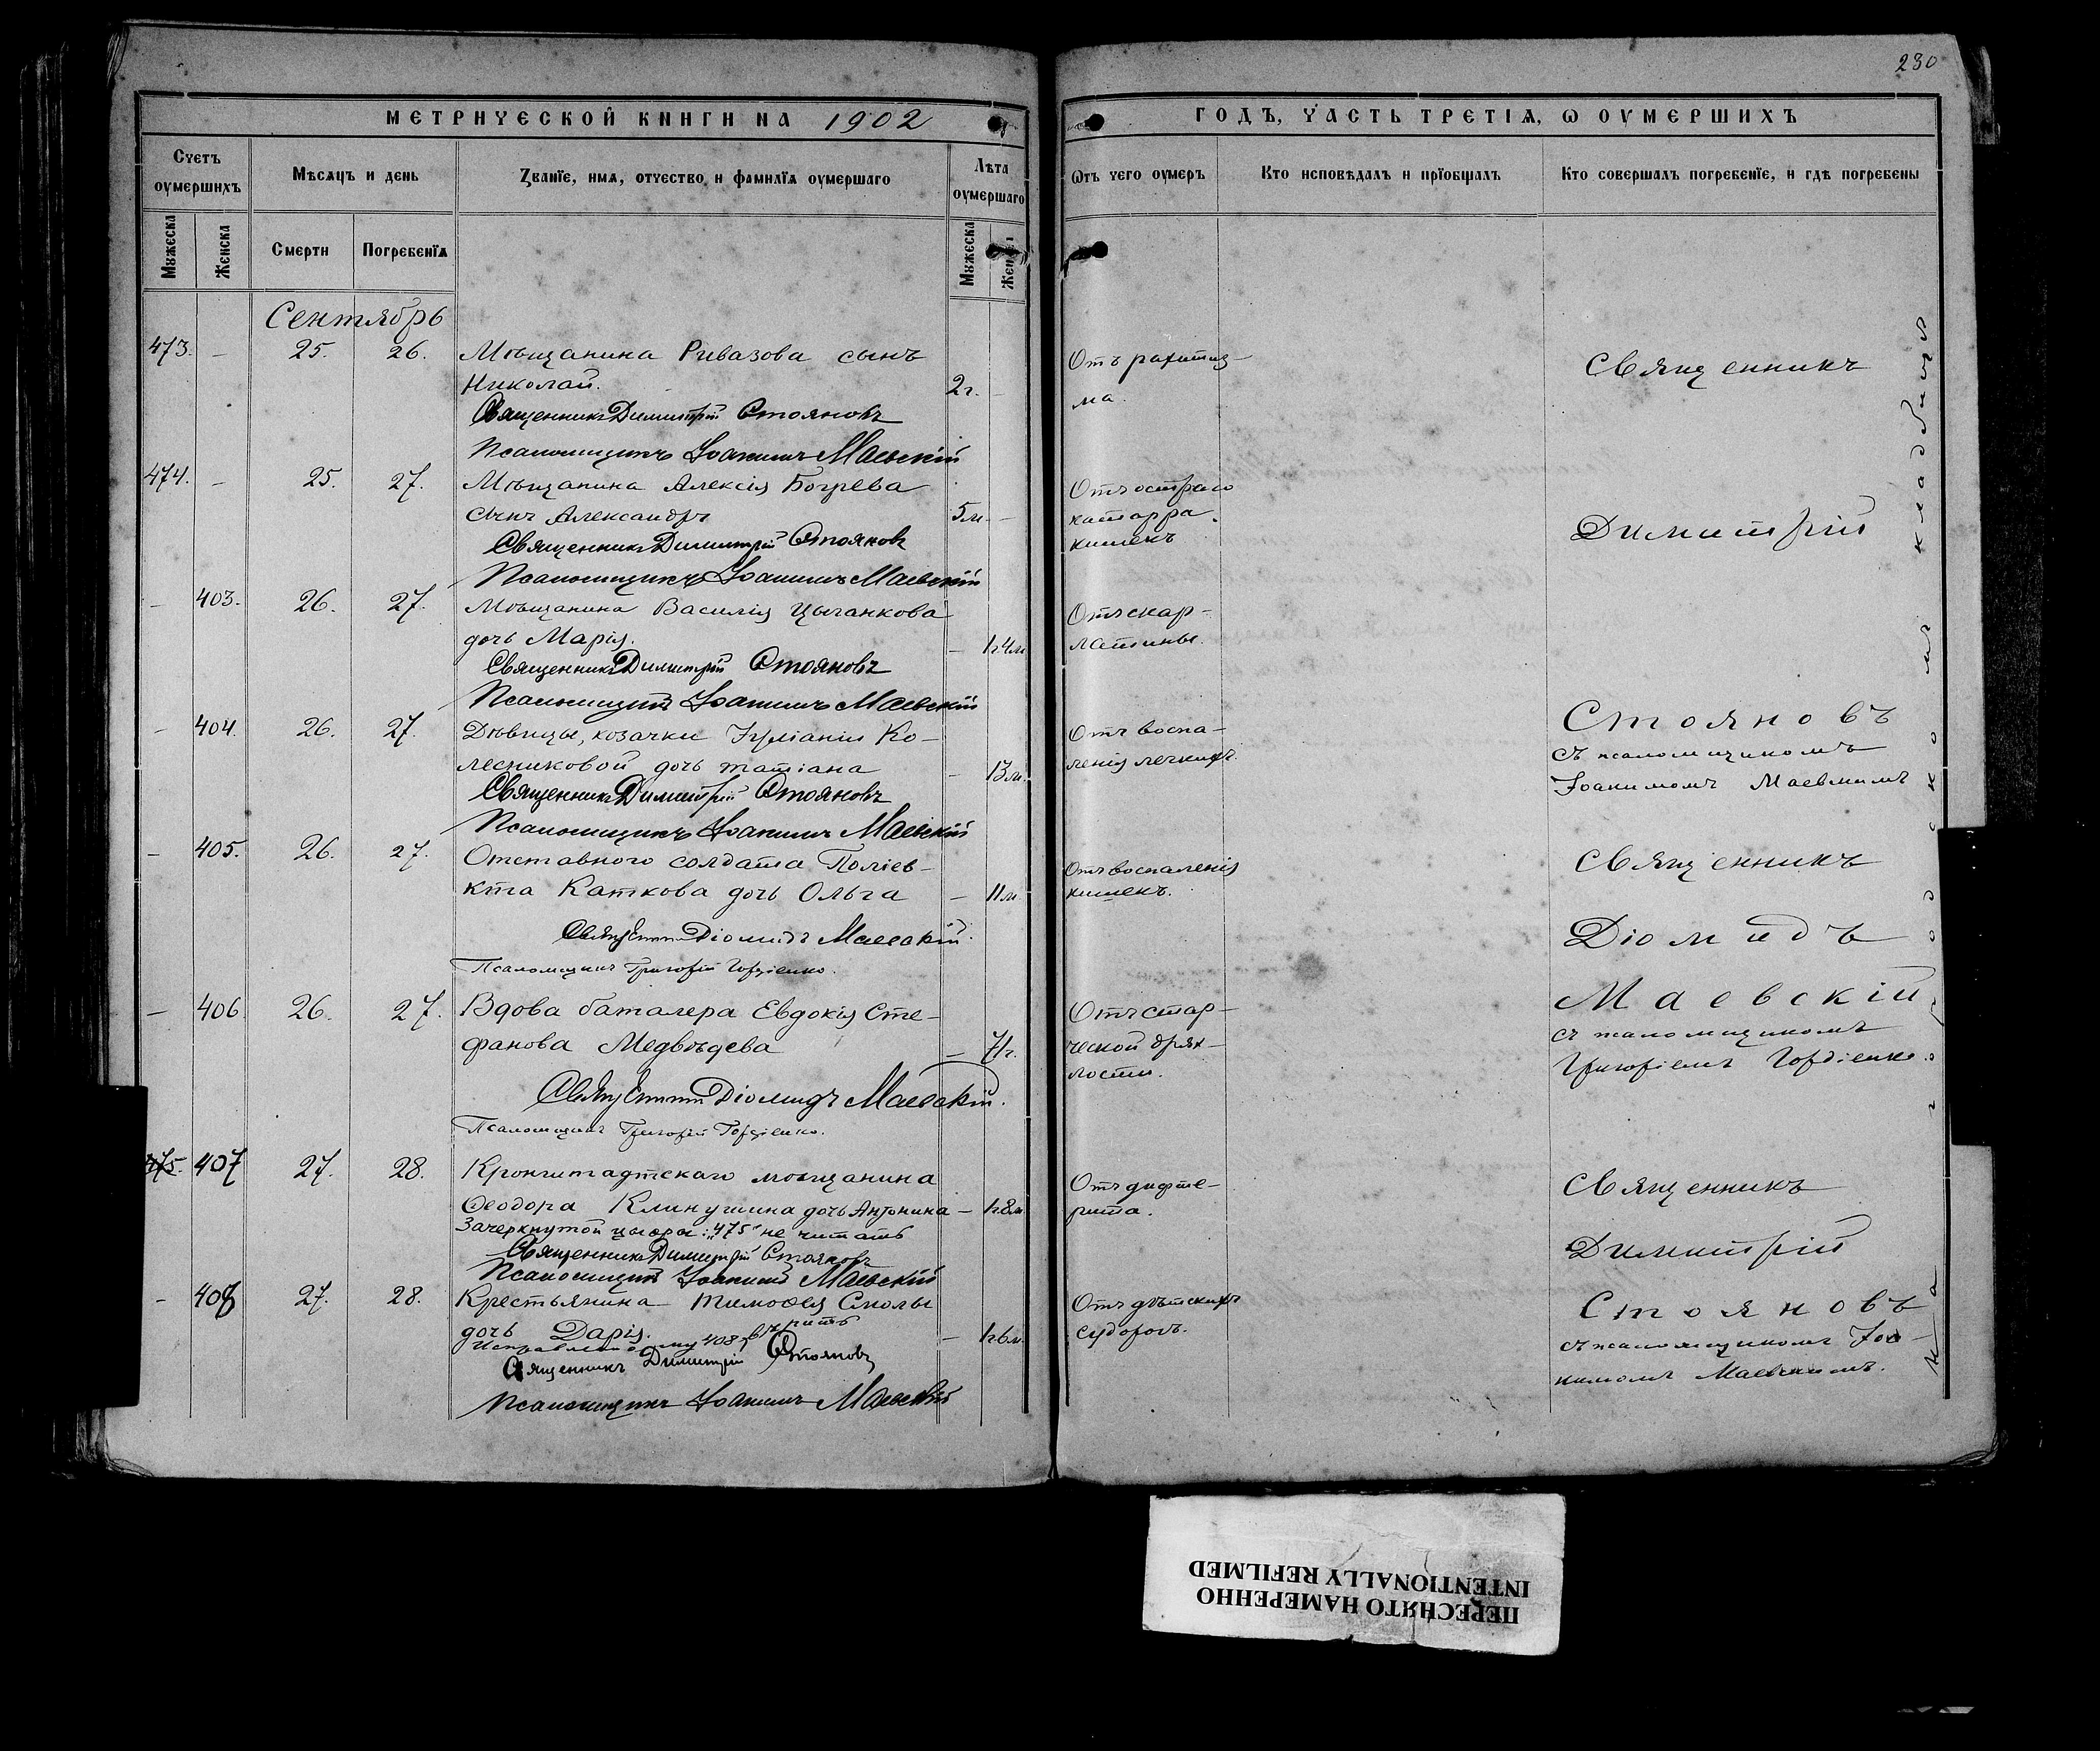 230
МЕТРИЧЕСКОЙ КНИГИ НА 1902
ГОДЪ, ЧАСТЬ ТРЕТІѦ, Ѡ ОУМЕРШИХЪ
Счетъ оумершихъ
Мѣсяцъ и день
Званїе, имя, отчество и фамилїя оумершаго
Лѣта оумершаго
Ѿтъ чего оумеръ
Кто исповѣдалъ и прїобщалъ
Кто совершалъ погребенїе, и гдѣ погребены
Мужеска
Женска
Смерти
Погребенїя
Мужеска
Сентябрь
473. – 25. 26. Мѣщанина Ривазова сынъ
Николай. 2г. –
Отъ рахитиз-
ма.
Священникъ Димитрій Стояновъ
Псаломщикъ Іоакимъ Маевскій
474. – 25. 27. Мѣщанина Алексія Богрева
сынъ Александръ 5м. –
Отъ остраго
катарра
кишекъ
Священникъ Димитрій Стояновъ
Псаломщикъ Іоакимъ Маевскій
– 403. 26. 27. Мѣщанина Василія Цыганкова
дочь Марія. – 1г.4м.
Отъ скар-
латины.
Священникъ Димитрій Стояновъ
Псаломщикъ Іоакимъ Маевскій
– 404. 26. 27. Дѣвицы, козачки Іуліаніи Ко-
лесниковой дочь Татіана – 13м.
Отъ воспа-
ленія легкихъ.
Священникъ Димитрій Стояновъ
Псаломщикъ Іоакимъ Маевскій
Священникъ
Димитрій
Стояновъ
съ псаломщикомъ
Іоакимомъ Маевскимъ
– 405. 26. 27. Отставного солдата Поліев-
кта Каткова дочь Ольга – 11м.
Отъ воспаленія
кишекъ.
Священникъ Діомидъ Маевскій.
Псаломщикъ Григорій Гордіенко.
– 406 26. 27. Вдова баталера Евдокія Сте-
фанова Медвѣдева – 71г.
Отъ стар-
ческой дрях-
лости.
Священникъ Діомидъ Маевскій.
Псаломщикъ Григорій Гордіенко.
Священникъ
Діомидъ
Маевскій
съ псаломщикомъ
Григоріемъ Гордіенко.
475. 407 27. 28. Кронштадтскаго мѣщанина
Ѳеодора Клинушина дочь Антонина – 1г.8м.
Отъ дифте-
рита.
Зачеркнутой цыфры: „475“ не читать
Священникъ Димитрій Стояновъ
Псаломщикъ Іоакимъ Маевскій
– 408 27. 28. Крестьянина Тимоѳея Смолы
дочь Дарія. – 1г.6м.
Отъ дѣтскихъ
судорогъ.
408 вѣрить
Священникъ Димитрій Стояновъ
Псаломщикъ Іоакимъ Маевскій
Священникъ
Димитрій
Стояновъ
съ псаломщикомъ Іоа-
кимомъ Маевскимъ.
На городскомъ кладбищѣ
ПЕРЕСНЯТО НАМЕРЕННО
INTENTIONALLY REFILMED